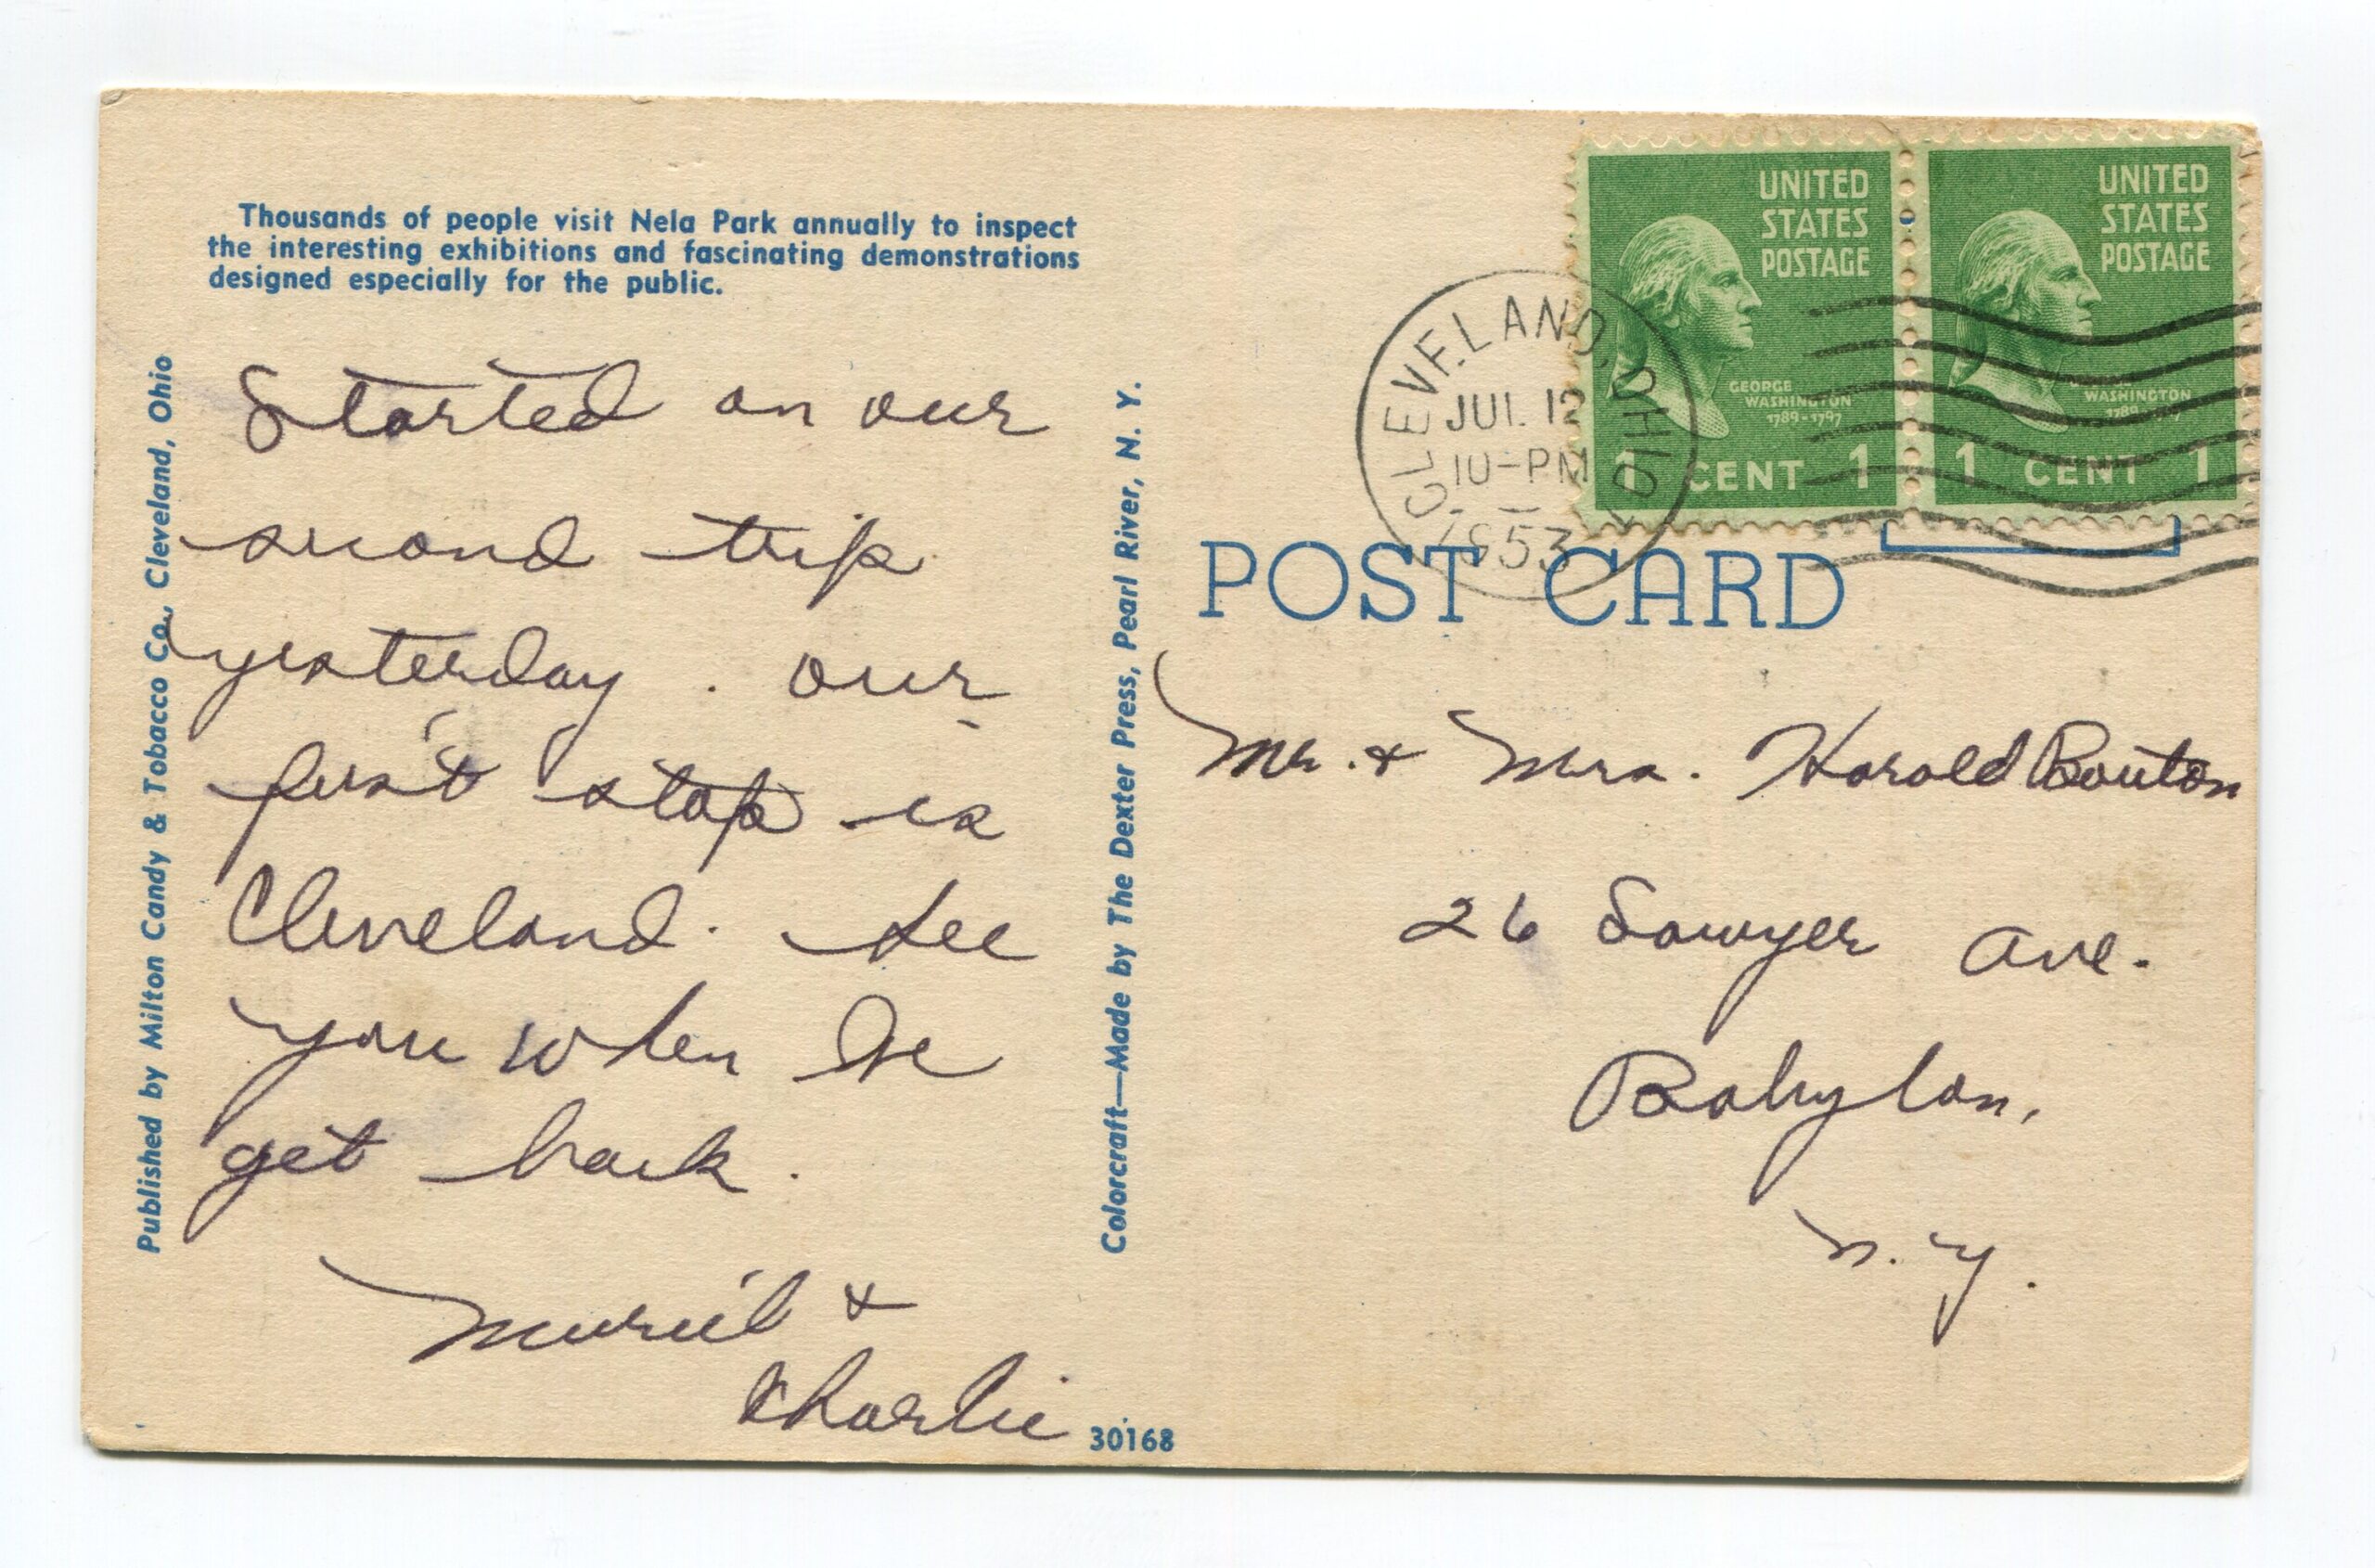 Thousands of people visit Nela Park annually to inspect
the interesting exhibitions and fascinating demonstrations
designed especially for the public.
Published by Milton Candy & Tobacco Co., Cleveland, Ohio
Started on our
second trip
yesterday. Our
first stop is
Cleveland. See
you when we
get back.
Muriel &
Charlie
Colorcraft—Made by The Dexter Press, Pearl River, N. Y.
30168
UNITED
STATES
POSTAGE
GEORGE
WASHINGTON
1789-1797
1 CENT 1
UNITED
STATES
POSTAGE
WASHINGTON
1 CENT 1
CLEVELAND, OHIO
JUL 12
10-PM
1953
POST CARD
Mr. & Mrs. Harold Bouton
26 Sawyer Ave.
Babylon,
N. Y.